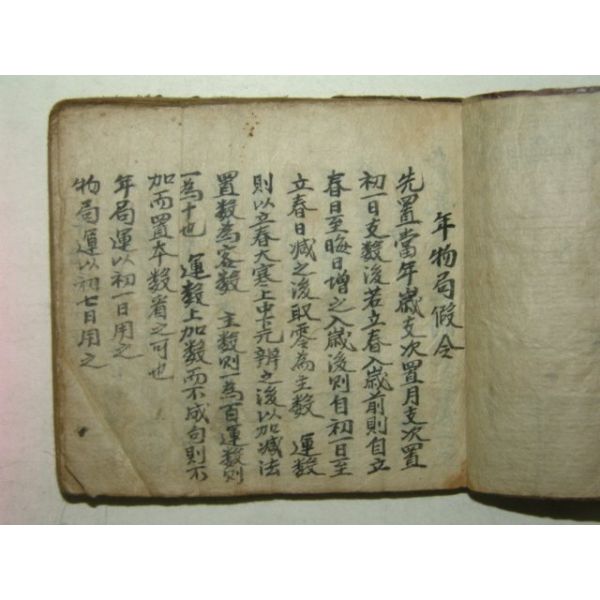 年物局假令
先置當年歲支次置月支次置
初一日支数後若立春入歲前則自立
春日至晦日增之入歲後則自初一日至
立春日减之後取零為主数 運数
則以立春大寒上中元辨之後以加减法
置数為客数 主数則一為百運数則
一為十也 運数上加数而不成句則不
加而置本数省之可也
年局運以初一日用之
物局運以初七日用之